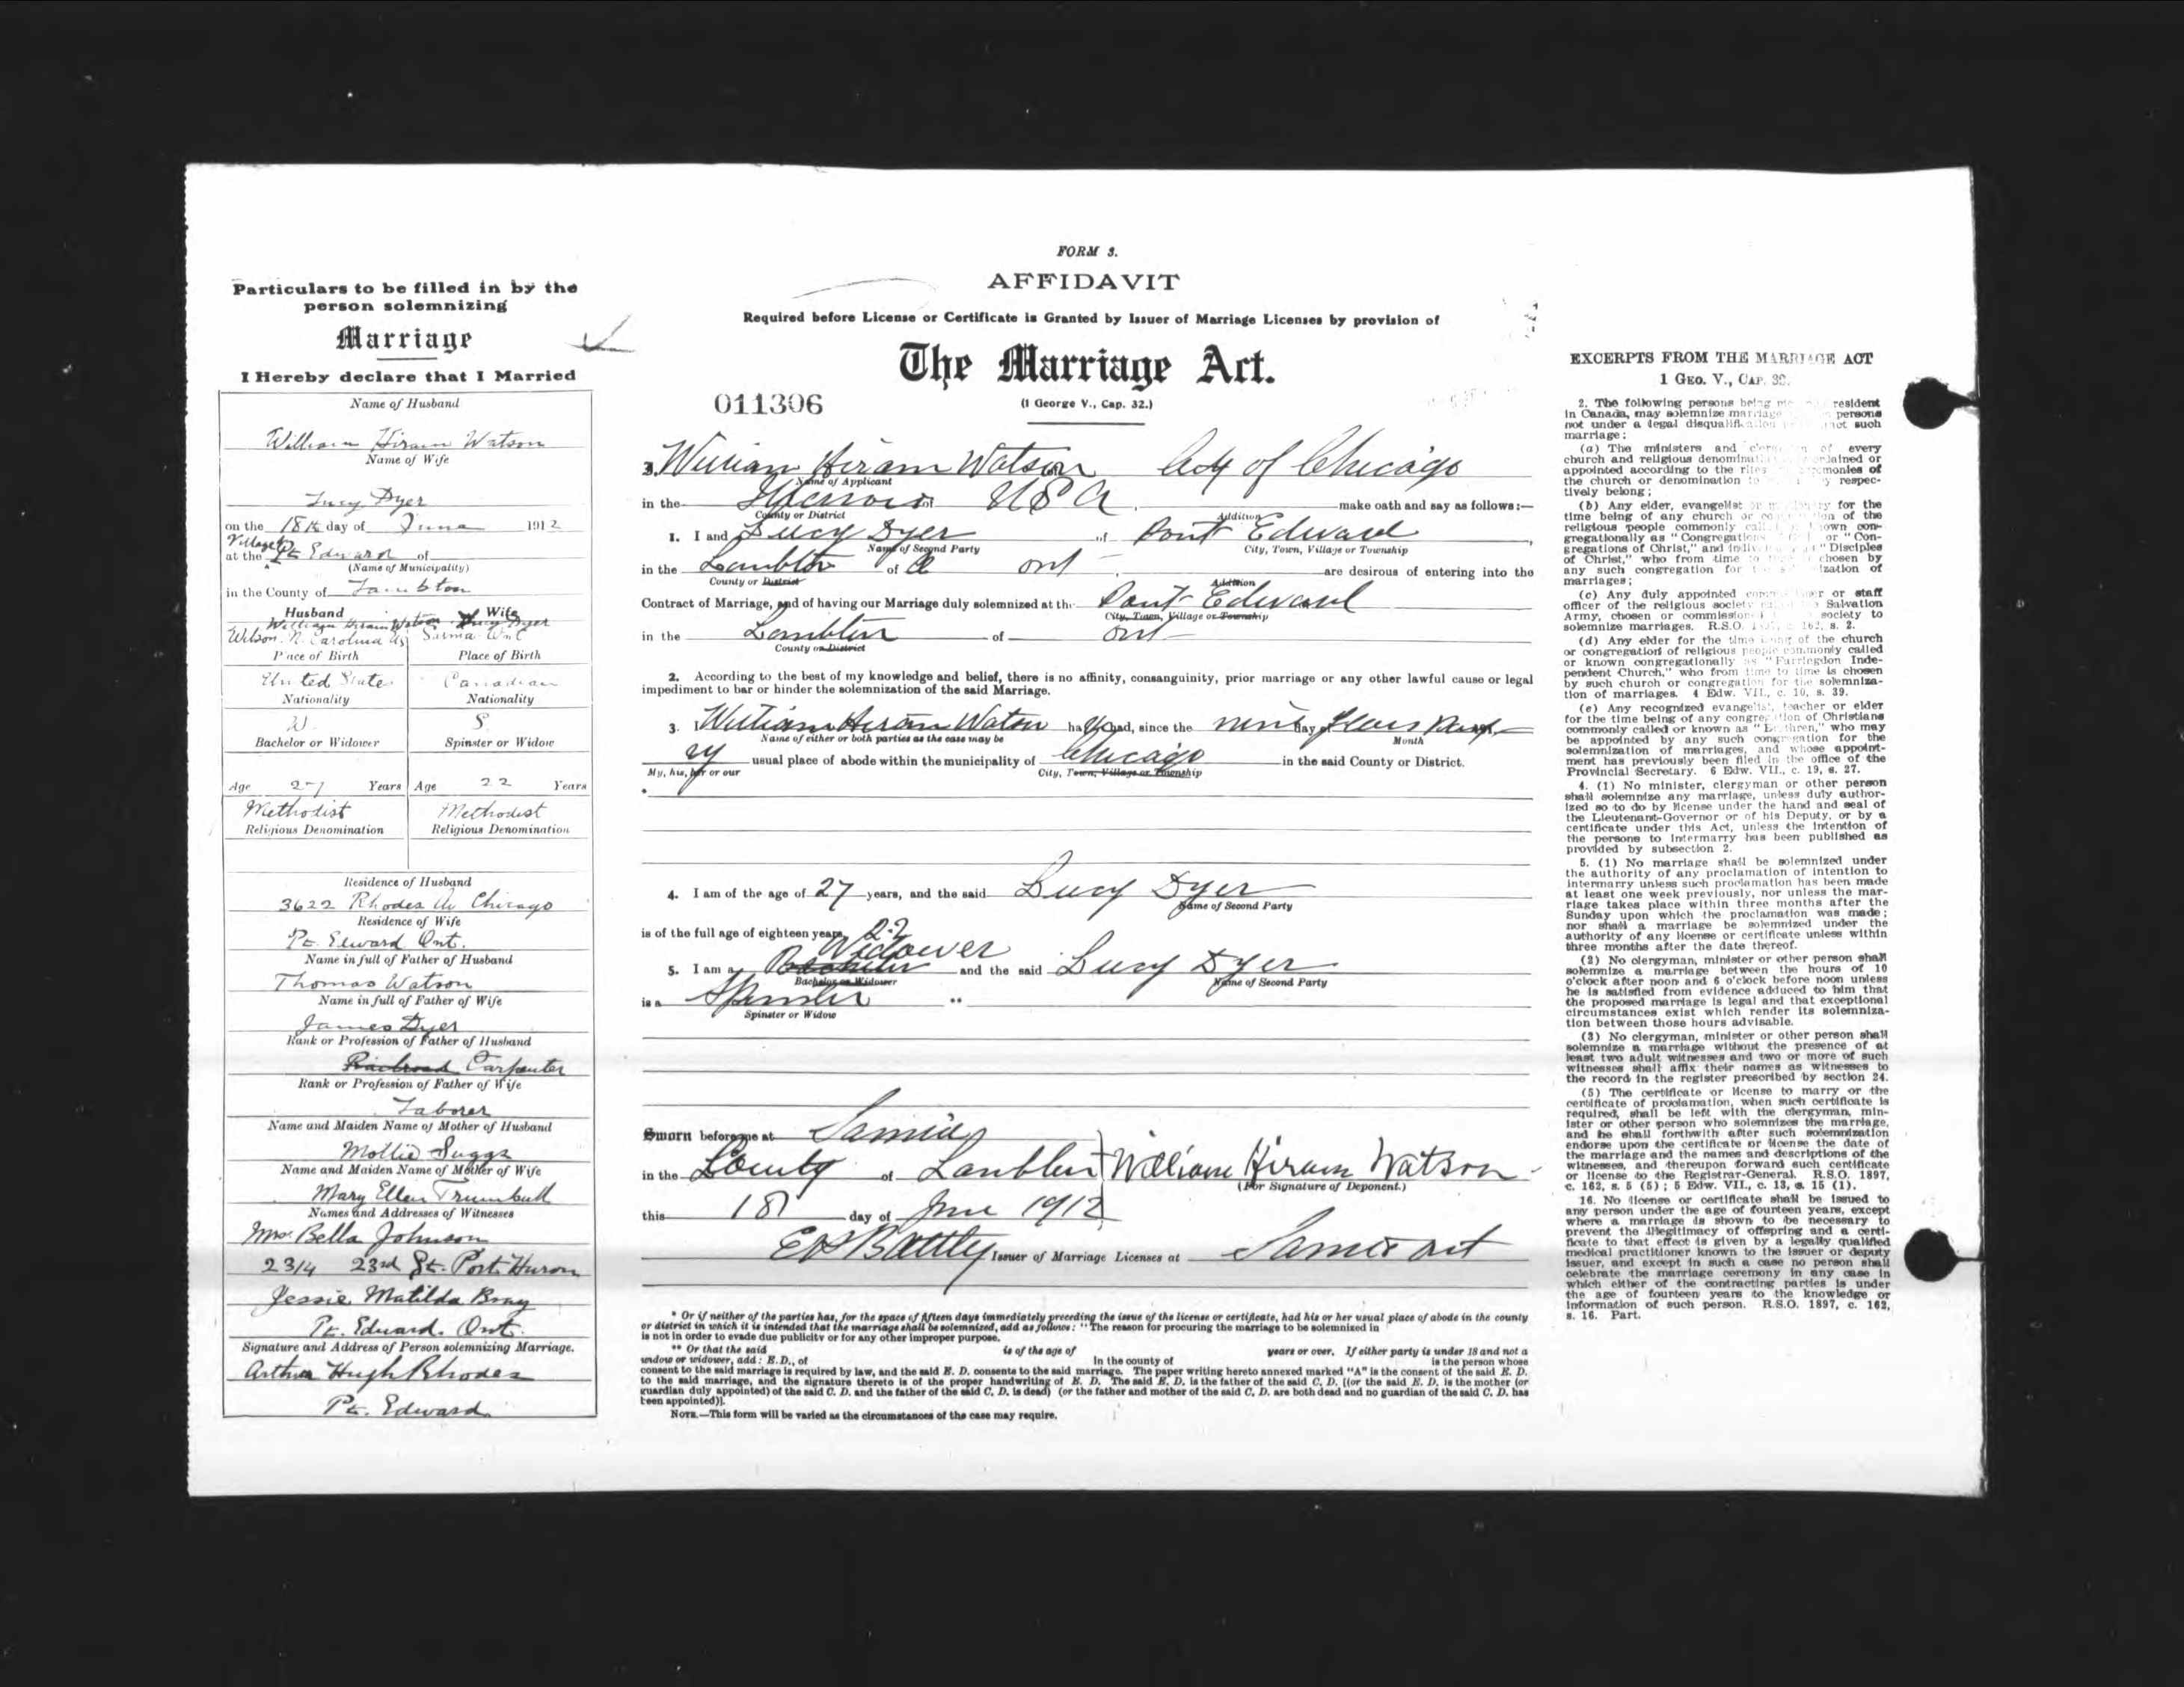 Particulars to be filled in by the
person solemnizing
Marriage
I Hereby declare that I Married
Name of Husband
William Hiram Watson
Name of Wife
Lucy Dyer
on the 18th day of June 1912
Village
at the Pt. Edward of
(Name of Municipality)
in the County of Lambton
Husband Wife
William Hiram Watson Lucy Dyer
Wilson N. Carolina US Sarnia Ont
Place of Birth Place of Birth
United States Canadian
Nationality Nationality
W. S
Bachelor or Widower Spinster or Widow
Age 27 Years Age 22 Years
Methodist Methodist
Religious Denomination Religious Denomination
Residence of Husband
3622 Rhodes Av Chicago
Residence of Wife
Pt. Edward Ont.
Name in full of Father of Husband
Thomas Watson
Name in full of Father of Wife
James Dyer
Rank or Profession of Father of Husband
Railroad Carpenter
Rank or Profession of Father of Wife
Laborer
Name and Maiden Name of Mother of Husband
Mollie Suggs
Name and Maiden Name of Mother of Wife
Mary Ellen Trumbull
Names and Addresses of Witnesses
Mrs. Bella Johnson
2314 23rd St. Port Huron
Jessie Matilda Bray
Pt. Edward. Ont.
Signature and Address of Person solemnizing Marriage.
Arthur Hugh Rhodes
Pt. Edward.
FORM 3.
AFFIDAVIT
Required before License or Certificate is Granted by Issuer of Marriage Licenses by provision of
The Marriage Act.
011306
(1 George V., Cap. 32.)
William Hiram Watson City of Chicago
Name of Applicant
in the Illinois of U S A make oath and say as follows:—
County or District Addition
1. I and Lucy Dyer of Point Edward
Name of Second Party City, Town, Village or Township
in the Lambton of Ont are desirous of entering into the
County or District Addition
Contract of Marriage, and of having our Marriage duly solemnized at the Point Edward
City, Town, Village or Township
in the Lambton of Ont
County or District
2. According to the best of my knowledge and belief, there is no affinity, consanguinity, prior marriage or any other lawful cause or legal
impediment to bar or hinder the solemnization of the said Marriage.
3. I William Hiram Watson had, since the day of
Name of either or both parties as the case may be Month
my usual place of abode within the municipality of Chicago in the said County or District.
My, his, her or our City, Town, Village or Township
4. I am of the age of 27 years, and the said Lucy Dyer
Name of Second Party
is of the full age of eighteen years, 22
Widower
5. I am a Bachelor and the said Lucy Dyer
Bachelor or Widower Name of Second Party
is a Spinster **
Spinster or Widow
Sworn before me at Sarnia
in the County of Lambton William Hiram Watson
(For Signature of Deponent.)
this 18 day of June 1912
Issuer of Marriage Licenses at Sarnia Ont
* Or if neither of the parties has, for the space of fifteen days immediately preceding the issue of the license or certificate, had his or her usual place of abode in the county
or district in which it is intended that the marriage shall be solemnized, add as follows: "The reason for procuring the marriage to be solemnized in
is not in order to evade due publicity or for any other improper purpose.
** Or that the said is of the age of years or over. If either party is under 18 and not a
widow or widower, add: E.D., of in the county of is the person whose
consent to the said marriage is required by law, and the said E. D. consents to the said marriage. The paper writing hereto annexed marked "A" is the consent of the said E. D.
to the said marriage, and the signature thereto is of the proper handwriting of E. D. The said E. D. is the father of the said C. D. [(or the said E. D. is the mother (or
guardian duly appointed) of the said C. D. and the father of the said C. D. is dead) (or the father and mother of the said C. D. are both dead and no guardian of the said C. D. has
been appointed)].
NOTE.—This form will be varied as the circumstances of the case may require.
EXCERPTS FROM THE MARRIAGE ACT
1 GEO. V., CAP. 32.
2. The following persons being resident
in Canada, may solemnize marriage persons
not under a legal disqualification such
marriage:
(a) The ministers and of every
church and religious denomination ordained or
appointed according to the rites ceremonies of
the church or denomination to respec-
tively belong;
(b) Any elder, evangelist or for the
time being of any church or of the
religious people commonly known con-
gregationally as "Congregations or "Con-
gregations of Christ," and "Disciples
of Christ," who from time to chosen by
any such congregation for
marriages;
(c) Any duly appointed or staff
officer of the religious society Salvation
Army, chosen or commission society to
solemnize marriages. R.S.O. c. 162, s. 2.
(d) Any elder for the time being of the church
or congregation of religious people commonly called
or known congregationally as "Farringdon Inde-
pendent Church," who from time to time is chosen
by such church or congregation for the solemniza-
tion of marriages. 4 Edw. VII., c. 10, s. 39.
(e) Any recognized evangelist, teacher or elder
for the time being of any congregation of Christians
commonly called or known as "Brethren," who may
be appointed by any such congregation for the
solemnization of marriages, and whose appoint-
ment has previously been filed in the office of the
Provincial Secretary. 6 Edw. VII., c. 19, s. 27.
4. (1) No minister, clergyman or other person
shall solemnize any marriage, unless duly author-
ized so to do by license under the hand and seal of
the Lieutenant-Governor or of his Deputy, or by a
certificate under this Act, unless the intention of
the persons to intermarry has been published as
provided by subsection 2.
5. (1) No marriage shall be solemnized under
the authority of any proclamation of intention to
intermarry unless such proclamation has been made
at least one week previously, nor unless the mar-
riage takes place within three months after the
Sunday upon which the proclamation was made;
nor shall a marriage be solemnized under the
authority of any license or certificate unless within
three months after the date thereof.
(2) No clergyman, minister or other person shall
solemnize a marriage between the hours of 10
o'clock after noon and 6 o'clock before noon unless
he is satisfied from evidence adduced to him that
the proposed marriage is legal and that exceptional
circumstances exist which render its solemniza-
tion between those hours advisable.
(3) No clergyman, minister or other person shall
solemnize a marriage without the presence of at
least two adult witnesses and two or more of such
witnesses shall affix their names as witnesses to
the record in the register prescribed by section 24.
(5) The certificate or license to marry or the
certificate of proclamation, when such certificate is
required, shall be left with the clergyman, min-
ister or other person who solemnizes the marriage,
and he shall forthwith after such solemnization
endorse upon the certificate or license the date of
the marriage and the names and descriptions of the
witnesses, and thereupon forward such certificate
or license to the Registrar-General. R.S.O. 1897,
c. 162, s. 5 (5); 5 Edw. VII., c. 13, s. 15 (1).
16. No license or certificate shall be issued to
any person under the age of fourteen years, except
where a marriage is shown to be necessary to
prevent the illegitimacy of offspring and a certi-
ficate to that effect is given by a legally qualified
medical practitioner known to the issuer or deputy
issuer, and except in such a case no person shall
celebrate the marriage ceremony in any case in
which either of the contracting parties is under
the age of fourteen years to the knowledge or
information of such person. R.S.O. 1897, c. 162,
s. 16. Part.